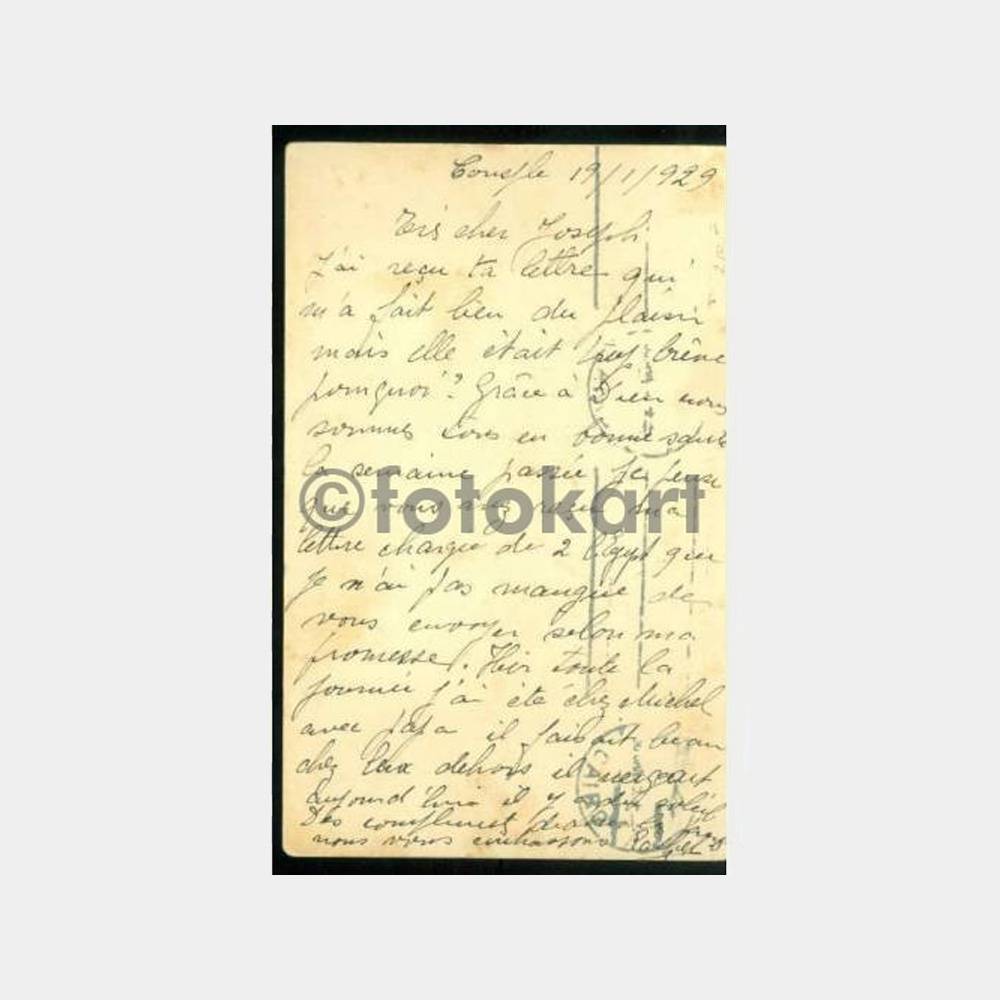 Consple 19/1/929
Très cher Joseph
J'ai reçu ta lettre qui
m'a fait bien du plaisir
mais elle était trop brève
pourquoi? Grâce à Dieu nous
sommes tous en bonne santé
la semaine passée je pense
que vous avez reçu ma
lettre chargée de 2 Egypt que
je n'ai pas manqué de
vous envoyer selon ma
promesse. Hier toute la
journée j'ai été chez Michel
avec papa il faisait beau
chez eux dehors il neigeait
aujourd'hui il y a du soleil
Des compliments
nous vous embrassons
CAIRO
©fotokart